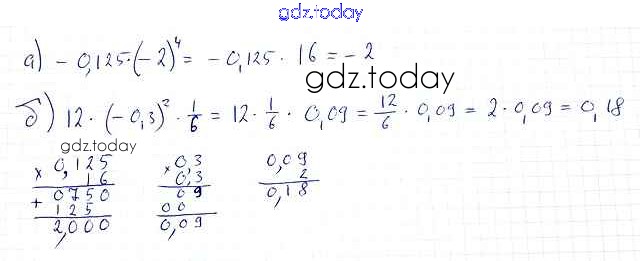 gdz.today
а) - 0,125·(-2)⁴ = - 0,125 · 16 = - 2
gdz.today
б) 12 · (-0,3)² · 1/6 = 12 · 1/6 · 0,09 = 12/6 · 0,09 = 2 · 0,09 = 0,18
gdz.today
× 0,125
16
+ 0750
125
2,000
× 0,3
0,3
09
00
0,09
0,09
2
0,18